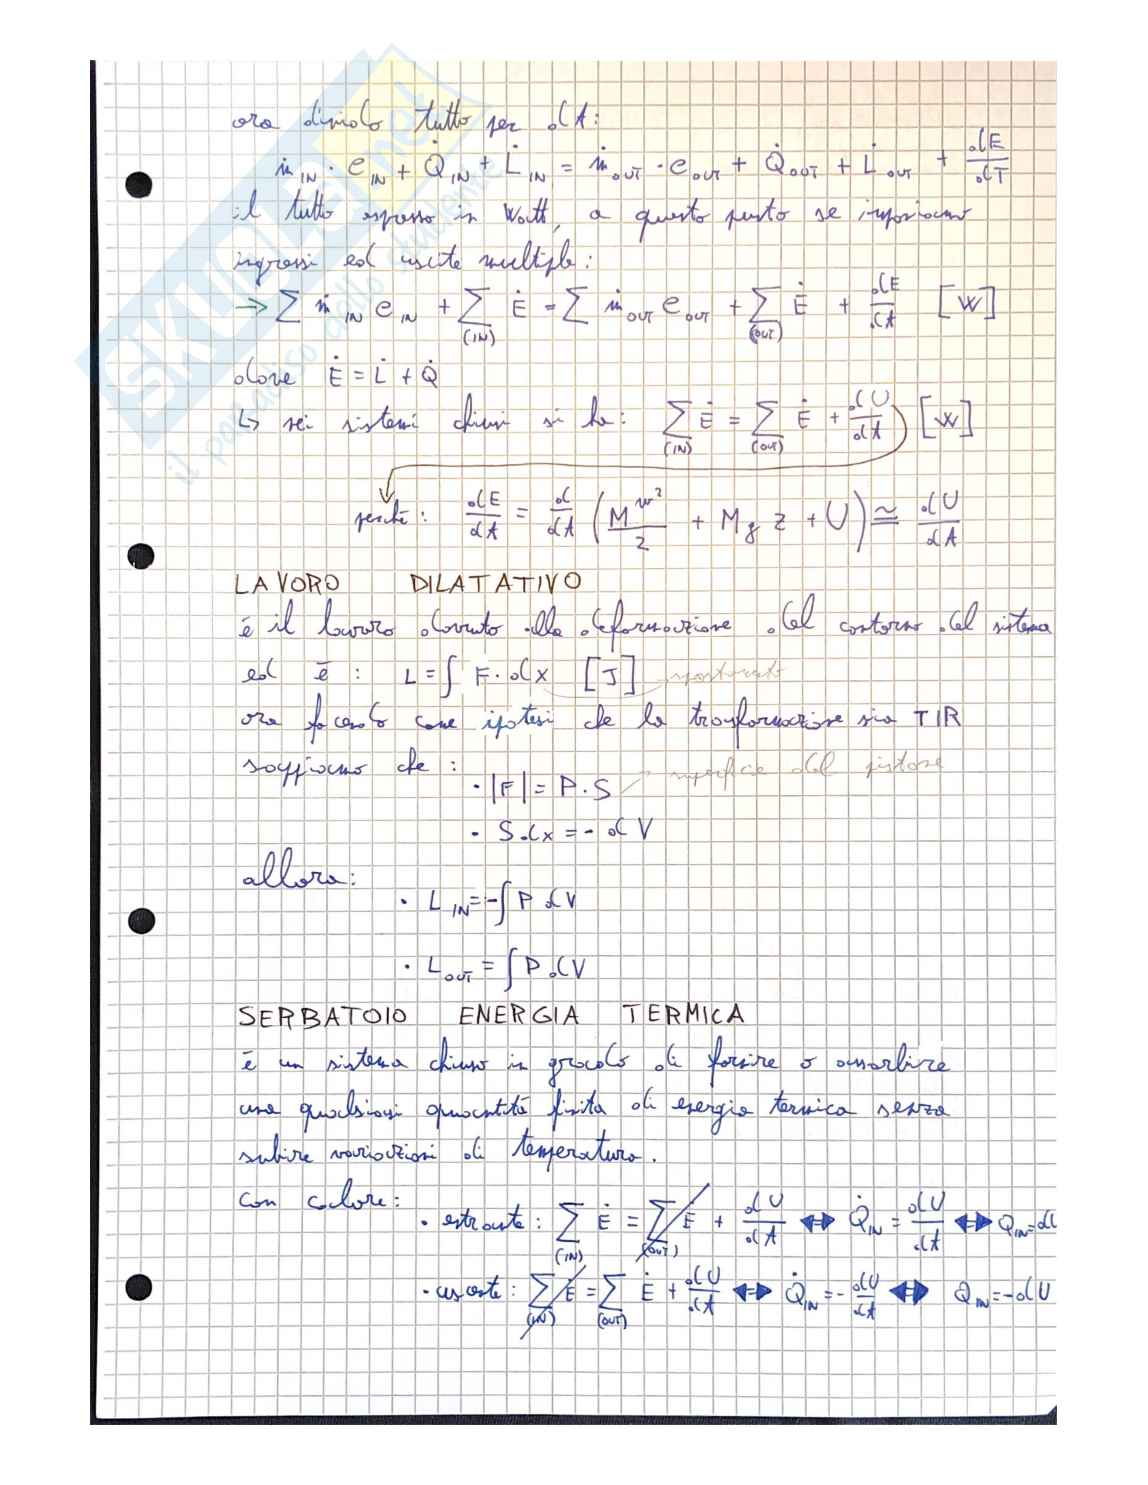 ora divido tutto per dt:
ṁ_IN · e_IN + Q̇_IN + L̇_IN = ṁ_OUT · e_OUT + Q̇_OUT + L̇_OUT + dE/dT
il tutto espresso in Watt, a questo punto se imponiamo
ingressi ed uscite multiple:
→ ∑ ṁ_IN e_IN + ∑_(IN) Ė = ∑ ṁ_OUT e_OUT + ∑_(OUT) Ė + dE/dt [W]
dove Ė = L̇ + Q̇
↳ nei sistemi chiusi si ha: ∑_(IN) Ė = ∑_(OUT) Ė + dU/dt [W]
perché: dE/dt = d/dt (M w²/2 + M g z + U) ≅ dU/dt
LAVORO DILATATIVO
è il lavoro dovuto alla deformazione del contorno del sistema
ed è: L = ∫ F · dx [J] spostamento
ora facendo come ipotesi che la trasformazione sia TIR
sappiamo che:
· |F| = P · S superficie del pistone
· S dx = - dV
allora:
· L_IN = -∫ P dV
· L_OUT = ∫ P dV
SERBATOIO ENERGIA TERMICA
è un sistema chiuso in grado di fornire o assorbire
una qualsiasi quantità finita di energia termica senza
subire variazioni di temperatura.
con calore:
· entrante: ∑_(IN) Ė = ∑_(OUT) Ė + dU/dt ⇔ Q̇_IN = dU/dt ⇔ Q_IN = dU
· uscente: ∑_(IN) Ė = ∑_(OUT) Ė + dU/dt ⇔ Q̇_IN = - dU/dt ⇔ Q_IN = -dU
SKUOLA.net
il paradiso dello studente